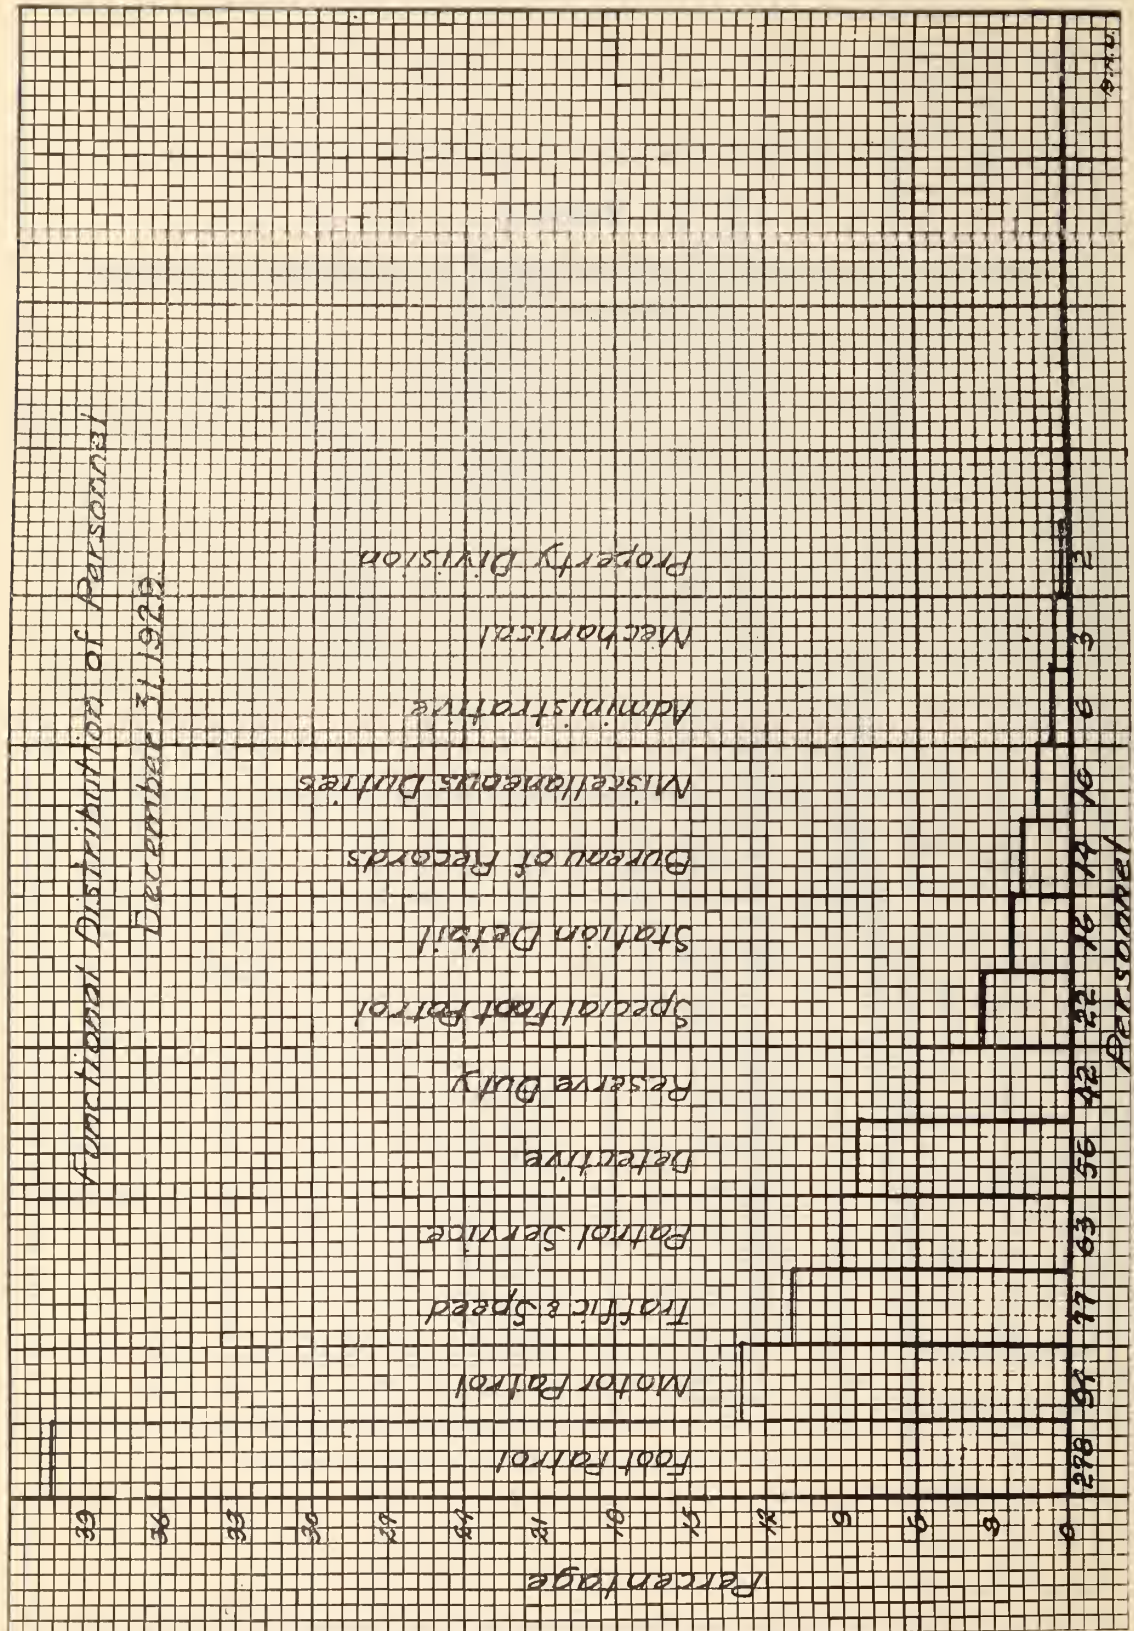 Functional Distribution of Personnel
December 31, 1929.
Percentage
39
36
33
30
27
24
21
18
15
12
9
6
3
0
Foot Patrol
Motor Patrol
Traffic & Speed
Patrol Service
Detective
Reserve Duty
Special Foot Patrol
Station Detail
Bureau of Records
Miscellaneous Duties
Administrative
Mechanical
Property Division
298 94 77 63 56 42 22 16 14 10 6 3 2
Personnel